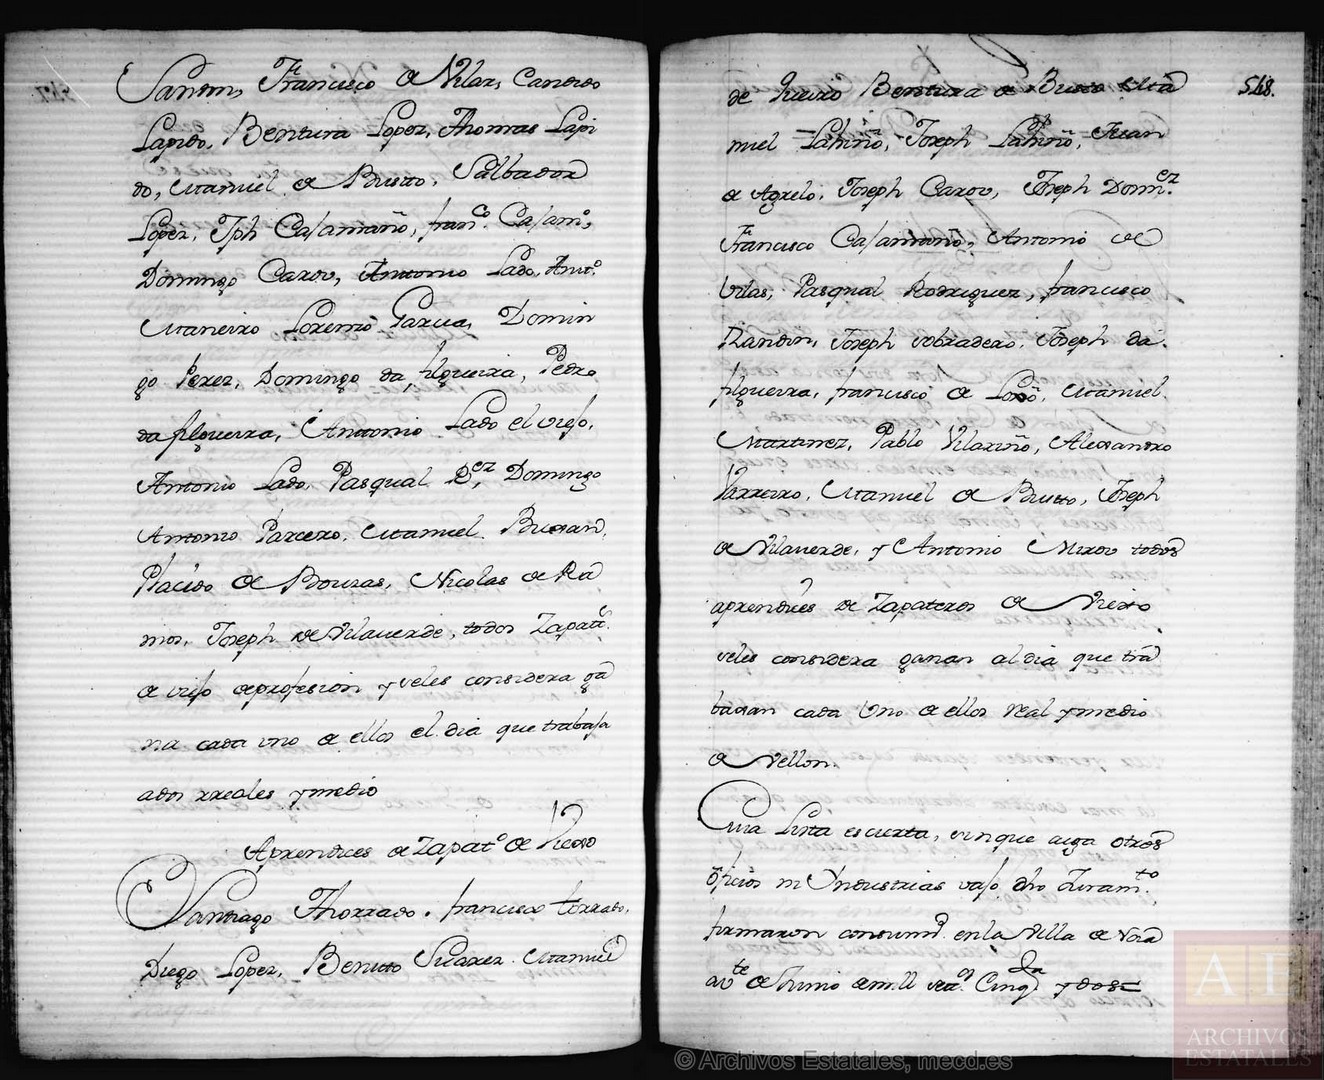 Sandin, Francisco de Vilar, Candido
Lapido, Bentura Lopez, Thomas Lapi
do, Manuel de Busto, Salbador
Lopez, Jph Casamaño, franco. Casamo,
Domingo Carou, Antonio Lado, Anto.
Maneiro Lorenzo Garcia, Domin
go Perez, Domingo da filgueira, Pedro
da filgueira, Antonio Lado el viejo,
Antonio Lado, Pasqual Rez, Domingo
Antonio Parcero, Manuel Busan,
Placido de Bouzas, Nicolas de Ra
mos, Joseph de Vilaverde, todos Zapats.
de viejo de profesion y veles considera ga
na cada uno de ellos el dia que trabaja
a dos rreales y medio
Aprendices de Zapato de Viejo
Santiago Thorrado, francisco torrado,
Diego Lopez, Benito Suarez, Manuel
548.
de Bentura de Busto Ma
nuel Lahiño, Joseph Lahiño, Juan
de Agrelo, Joseph Carou, Joseph Domez.
Francisco Casamaño, Antonio de
Vilas, Pasqual Rodriguez, francisco
Joseph sobradero, Joseph da
filgueira, francisco de Manuel
Martinez, Pablo Vilariño, Alexandro
Barreiro, Manuel de Busto, Joseph
de Vilaverde, y Antonio Mirou todos
aprendices de Zapateros de Viexo
veles considera ganan al dia que tra
baxan cada Uno de ellos real y medio
de Vellon.
Cuia Lista escierta, sin que aiga otros
oficios ni Yndustrias vajo dho Juramto.
firmaron en la Villa de Noia
a de Junio de mill seteo. Cinqta y dos =
AE
ARCHIVOS
ESTATALES
© Archivos Estatales, mecd.es